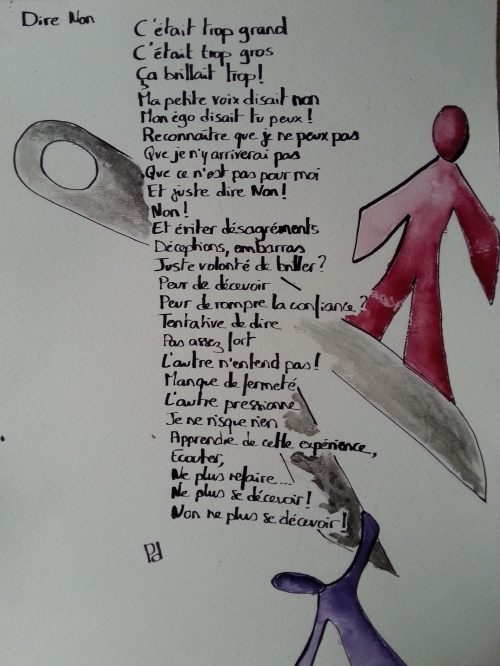 Dire Non
C'était trop grand
C'était trop gros
Ça brillait trop!
Ma petite voix disait non
Mon égo disait tu peux!
Reconnaître que je ne peux pas
Que je n'y arriverai pas
Que ce n'est pas pour moi
Et juste dire Non!
Non!
Et éviter désagréments
Déceptions, embarras
Juste volonté de briller?
Peur de décevoir
Peur de rompre la confiance?
Tentative de dire
Pas assez fort
L'autre n'entend pas!
Manque de fermeté
L'autre pressionne
Je ne risque rien
Apprendre de cette expérience,
Ecouter,
Ne plus refaire....
Ne plus se décevoir!
Non ne plus se décevoir!
Pd